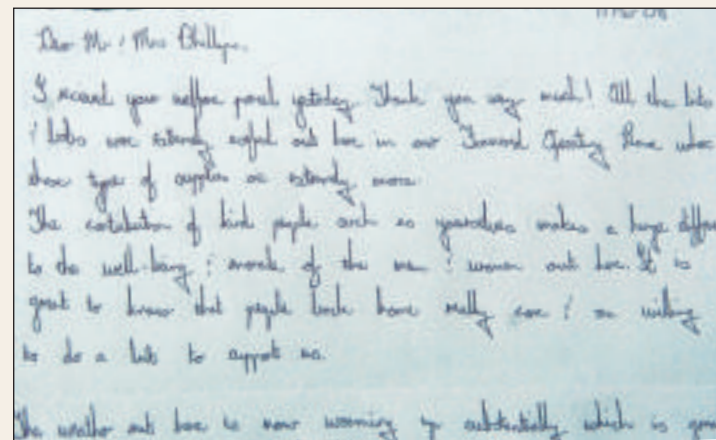 Dear Mr & Mrs Phillips,
I received your welfare parcel yesterday. Thank you very much! All the bits
& bobs were extremely useful out here in our Forward Operating Base where
these types of supplies are extremely scarce.
The contribution of kind people such as yourselves makes a huge differ
to the well-being & morale of the men & women out here. It is
great to know that people back home really care & are willing
to do a bits to support us.
The weather out here is now warming up substantially which is